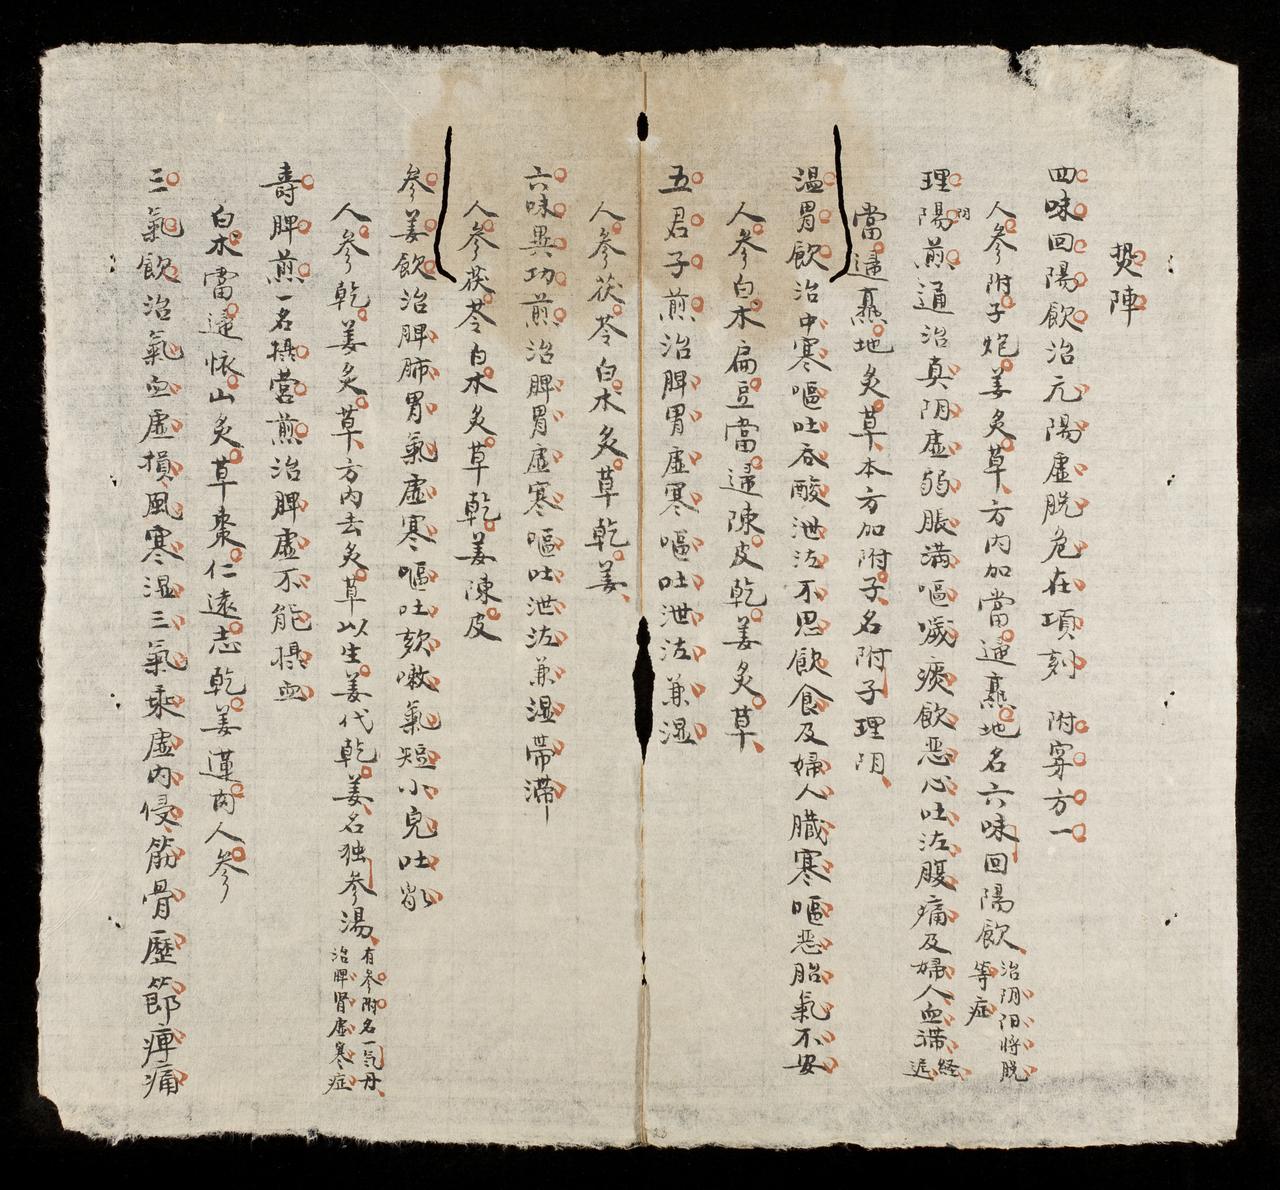 热陣
四味回陽飲治元陽虛脱危在項刻 附穿方一
人參附子炮姜炙草方内加當逯熹地名六味回陽飲治阴阳將脱
等症
理陽煎通治真阴虛弱脹滿嘔噦痰飲恶心吐泻腹痛及婦人血滞経
遅
阴
當逯熹地炙草本方加附子名附子理阴
温胃飲治中寒嘔吐吞酸泄泻不思飲食及婦人臓寒嘔恶胎氣不安
人參白朮扁豆當逯陳皮乾姜炙草
五君子煎治脾胃虛寒嘔吐泄泻兼湿
人參茯苓白朮炙草乾姜
六味異功煎治脾胃虛寒嘔吐泄泻兼湿帶滞
人參茯苓白朮炙草乾姜陳皮
參姜飲治脾肺胃氣虛寒嘔吐欬嗽氣短小兒吐乳
人參乾姜炙草方内去炙草以生姜代乾姜名独參湯有參附名一氕丹
治脾肾虛寒症
壽脾煎一名摂营煎治脾虛不能摂血
白朮當逯懐山炙草棗仁遠志乾姜蓮肉人參
三氣飲治氣血虛損風寒湿三氣乘虛内侵筋骨歷節痺痛